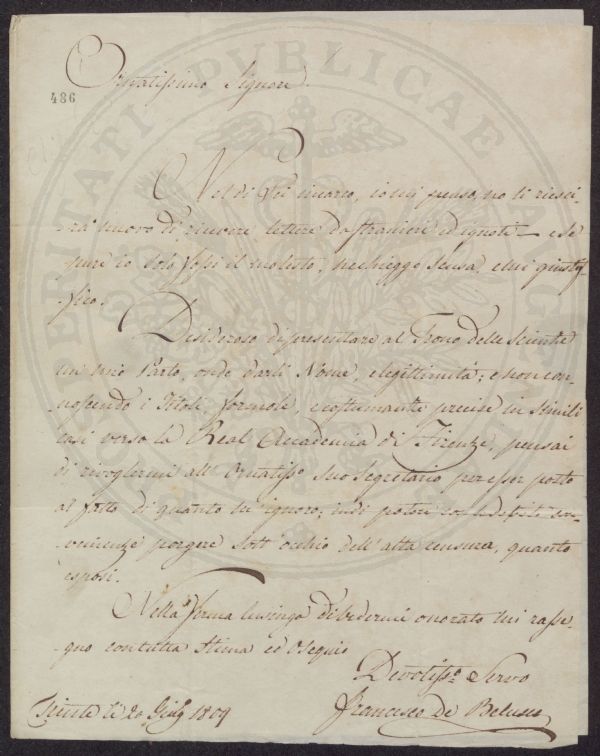 Ornatissimo Signore
486
Nel di Lei incarco, io mi penso, no ti riesci-
-rà nuovo di ricevere lettere da stranieri ed ignoti — e se
pure io solo fossi il molesto, ne chieggo scusa, e mi giusti-
-fico.
Desideroso di presentare al Trono delle Scienze
un mio Parto, onde darli Nome, e legittimità; e non con-
-noscendo i Titoli, formole, e costumanze precise in simili
casi verso la Real Accademia di Firenze, pensai
di rivoglermi all' Ornatisso suo Segretario per esser posto
al fatto di quanto su ignoro, indi potere con le debite con-
venienze porgere sott' occhio dell' alta censura, quanto
esposi.
Nella ferma lusinga di vedermi onorato mi rasse-
-gno con tutta Stima ed Osequio
Devotisso Servo
Francesco de
li 20 1809